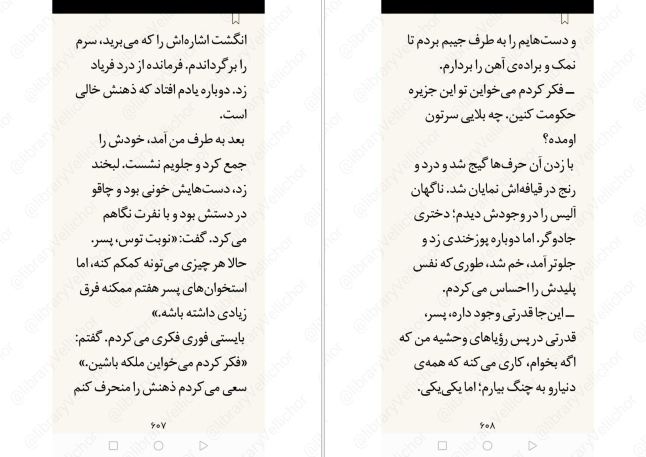 انگشت اشاره‌اش را که می‌برید، سرم
را برگرداندم. فرمانده از درد فریاد
زد. دوباره یادم افتاد که ذهنش خالی
است.
بعد به طرف من آمد، خودش را
جمع کرد و جلویم نشست. لبخند
زد، دست‌هایش خونی بود و چاقو
در دستش بود و با نفرت نگاهم
می‌کرد. گفت: «نوبت توس، پسر.
حالا هر چیزی می‌تونه کمکم کنه، اما
استخوان‌های پسر هفتم ممکنه فرق
زیادی داشته باشه.»
بایستی فوری فکری می‌کردم. گفتم:
«فکر کردم می‌خواین ملکه باشین.»
سعی می‌کردم ذهنش را منحرف کنم
۶۰۷
و دست‌هایم را به طرف جیبم بردم تا
نمک و براده‌ی آهن را بردارم.
ــ فکر کردم می‌خواین تو این جزیره
حکومت کنین. چه بلایی سرتون
اومده؟
با زدن آن حرف‌ها گیج شد و درد و
رنج در قیافه‌اش نمایان شد. ناگهان
آلیس را در وجودش دیدم؛ دختری
جادوگر. اما دوباره پوزخندی زد و
جلوتر آمد، خم شد، طوری که نفس
پلیدش را احساس می‌کردم.
ــ این‌جا قدرتی وجود داره، پسر،
قدرتی در پس رؤیاهای وحشیه من که
اگه بخوام، کاری می‌کنه که همه‌ی
دنیارو به چنگ بیارم؛ اما یکی‌یکی.
۶۰۸
@libraryVellichor